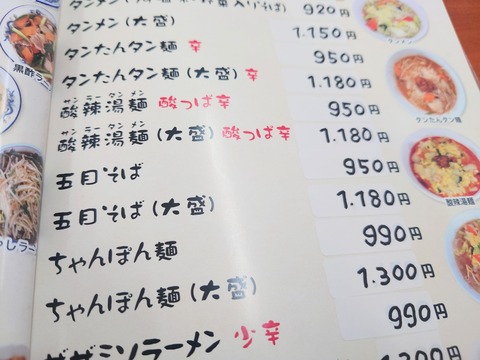 タンメン 920円
タンメン(大盛) 1.150円
タンたんタン麺 辛 950円
タンたんタン麺(大盛) 辛 1.180円
サンラータンメン
酸辣湯麺 酸っぱ辛 950円
サンラータンメン
酸辣湯麺(大盛) 酸っぱ辛 1.180円
五目そば 950円
五目そば(大盛) 1.180円
ちゃんぽん麺 990円
ちゃんぽん麺(大盛) 1.300円
ミソラーメン 少辛 990円
タンメン
タンたんタン麺
酸辣湯麺
黒酢ラ